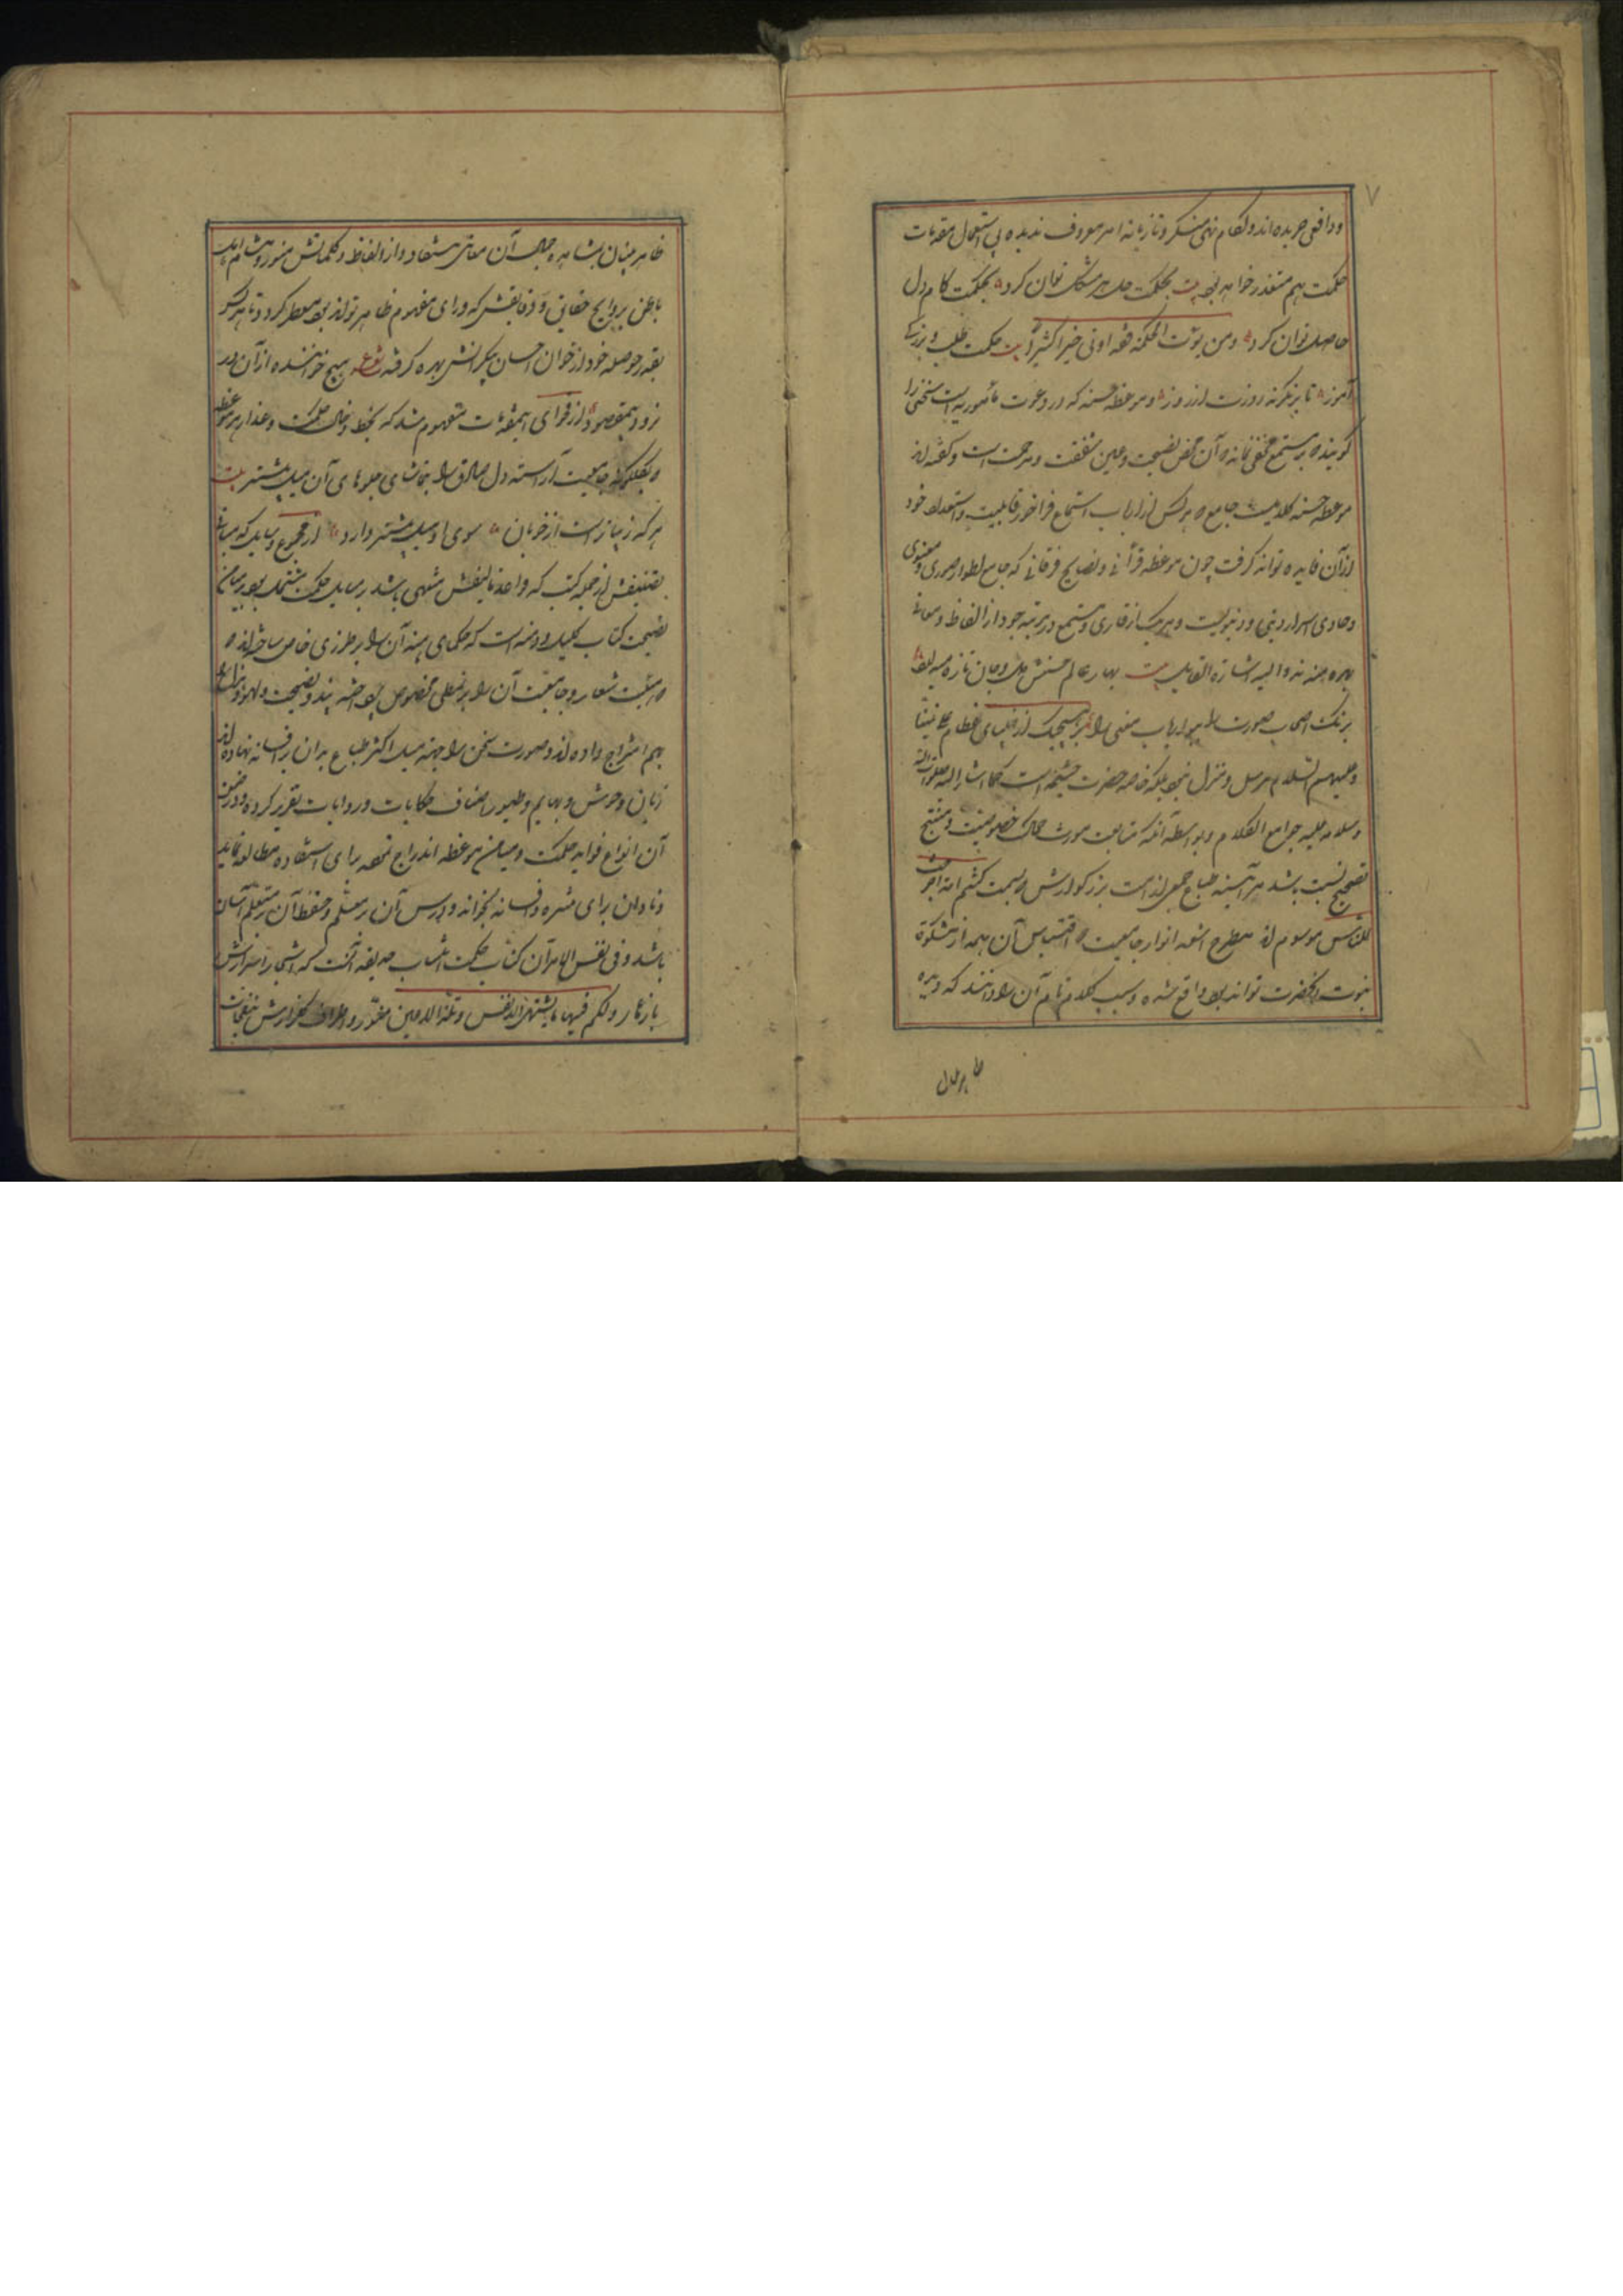 ۷
حکمت هم متعذر خواهد بود بیت بحکمت حل هر مشکل توان کرد بحکمت کام دل
حاصل توان کرد ومن یؤت الحکمة فقد اوتی خیرا کثیرا بیت حکمت طلب و بزرگی
آموز تا به نگرند روزت از روز و موعظه حسنه که در دعوت مأمور به است سخنی را
گویند که بر مستمع مخفی نماند که آن محض نصیحت وعین شفقت ومرحمت است وگفته اند
موعظه حسنه کلامیست جامع که هر کس از ارباب استماع فراخور قابلیت واستعداد خود
ازآن فایده تواند گرفت چون موعظه قرآنی و نصایح فرقانی که جامع اطوار صوری و معنوی
وحاوی اسرار دینی و دنیویست وهر یک از قاری و مستمع در مرتبه خود از الفاظ ومعانی
بهره مندند والیه اشارة القایل بیت بهار عالم حسنش دل وجان تازه میدارد
برنک اصحاب صورت را ببو ارباب معنی را بر هیچیک از انبیای عظام علی نبینا
وعلیهم السلام مرسل ومنزل نبود بلکه خاصه حضرت ختمیه است کما اشار الیه صلوات الله
وسلامه علیه جوامع الکلام وبواسطه آنکه متابعت مورث کمال خصوصیت و منتج
تصحیح نسبت باشد هر آینه طباع جمعی از امت بزرگوارش که بسمت کنتم خیر امة اخرجت
للناس موسوم اند مطرح اشعه انوار جامعیت که اقتباس آن هم از مشکوة
نبوت آنحضرت تواند بود واقع شده وسبب کلام تام آن را دانند که دیده
ظاهربینان بمشاهده جمال آن معانی مستفاد از الفاظ وکلماتش منور ومشام اهل
باطن بروایح حقایق و دقایقش که ورای مفهوم ظاهر تواند بود معطر گردد تا هر کس
بقدر حوصله خود از خوان احسان بیکرانش بهره گرفته مصرع هیچ خواهنده ازآن در
نرود بیمقصود از فحوای این مقدمات مفهوم شد که بخط وخال حکمت وعذار هر موعظه
وبگلگونه جامعیت آراسته دل صادق را بتماشای جلوهای آن میل بیشتر بیت
هر که زیباتر است از خوبان سوی او میل بیشتر دارد از مجموع رسایل که مبانی
تصنیفش از جمله کتب که قواعد تألیفش منتهی باشد بمسایل حکمت مشتمل بود برمیامن
نصیحت کتاب کلیله و دمنه است که حکمای هند آن را بر طرزی خاص ساخته اند و
آن را بر نمطی مخصوص پرداخته پند و نصیحت و لهو و هزل را
بهم امتزاج داده اند و صورت سخن را بجهة میل اکثر طباع بدان بر افسانه نهاده اند
زبان وحوش و بهایم وطیور اصناف حکایات وروایات تقریر کرده ودرضمن
آن انواع فواید حکمت ومیامن موعظه اندراج نموده برای استفاده مطالعه نماید
ونادان برای شهره و افسانه بخواند ودرس آن بر معلم وحفظ آن بر متعلم آسان
باشد وفی نفس الامر آن کتاب حکمت انتساب حدیقه ایست که اشجار اسرارش
بازهار ولکم فیها ما تشتهی الانفس وتلذ الاعین منور واطراف گلزارش بنفحات
ظاهربینان